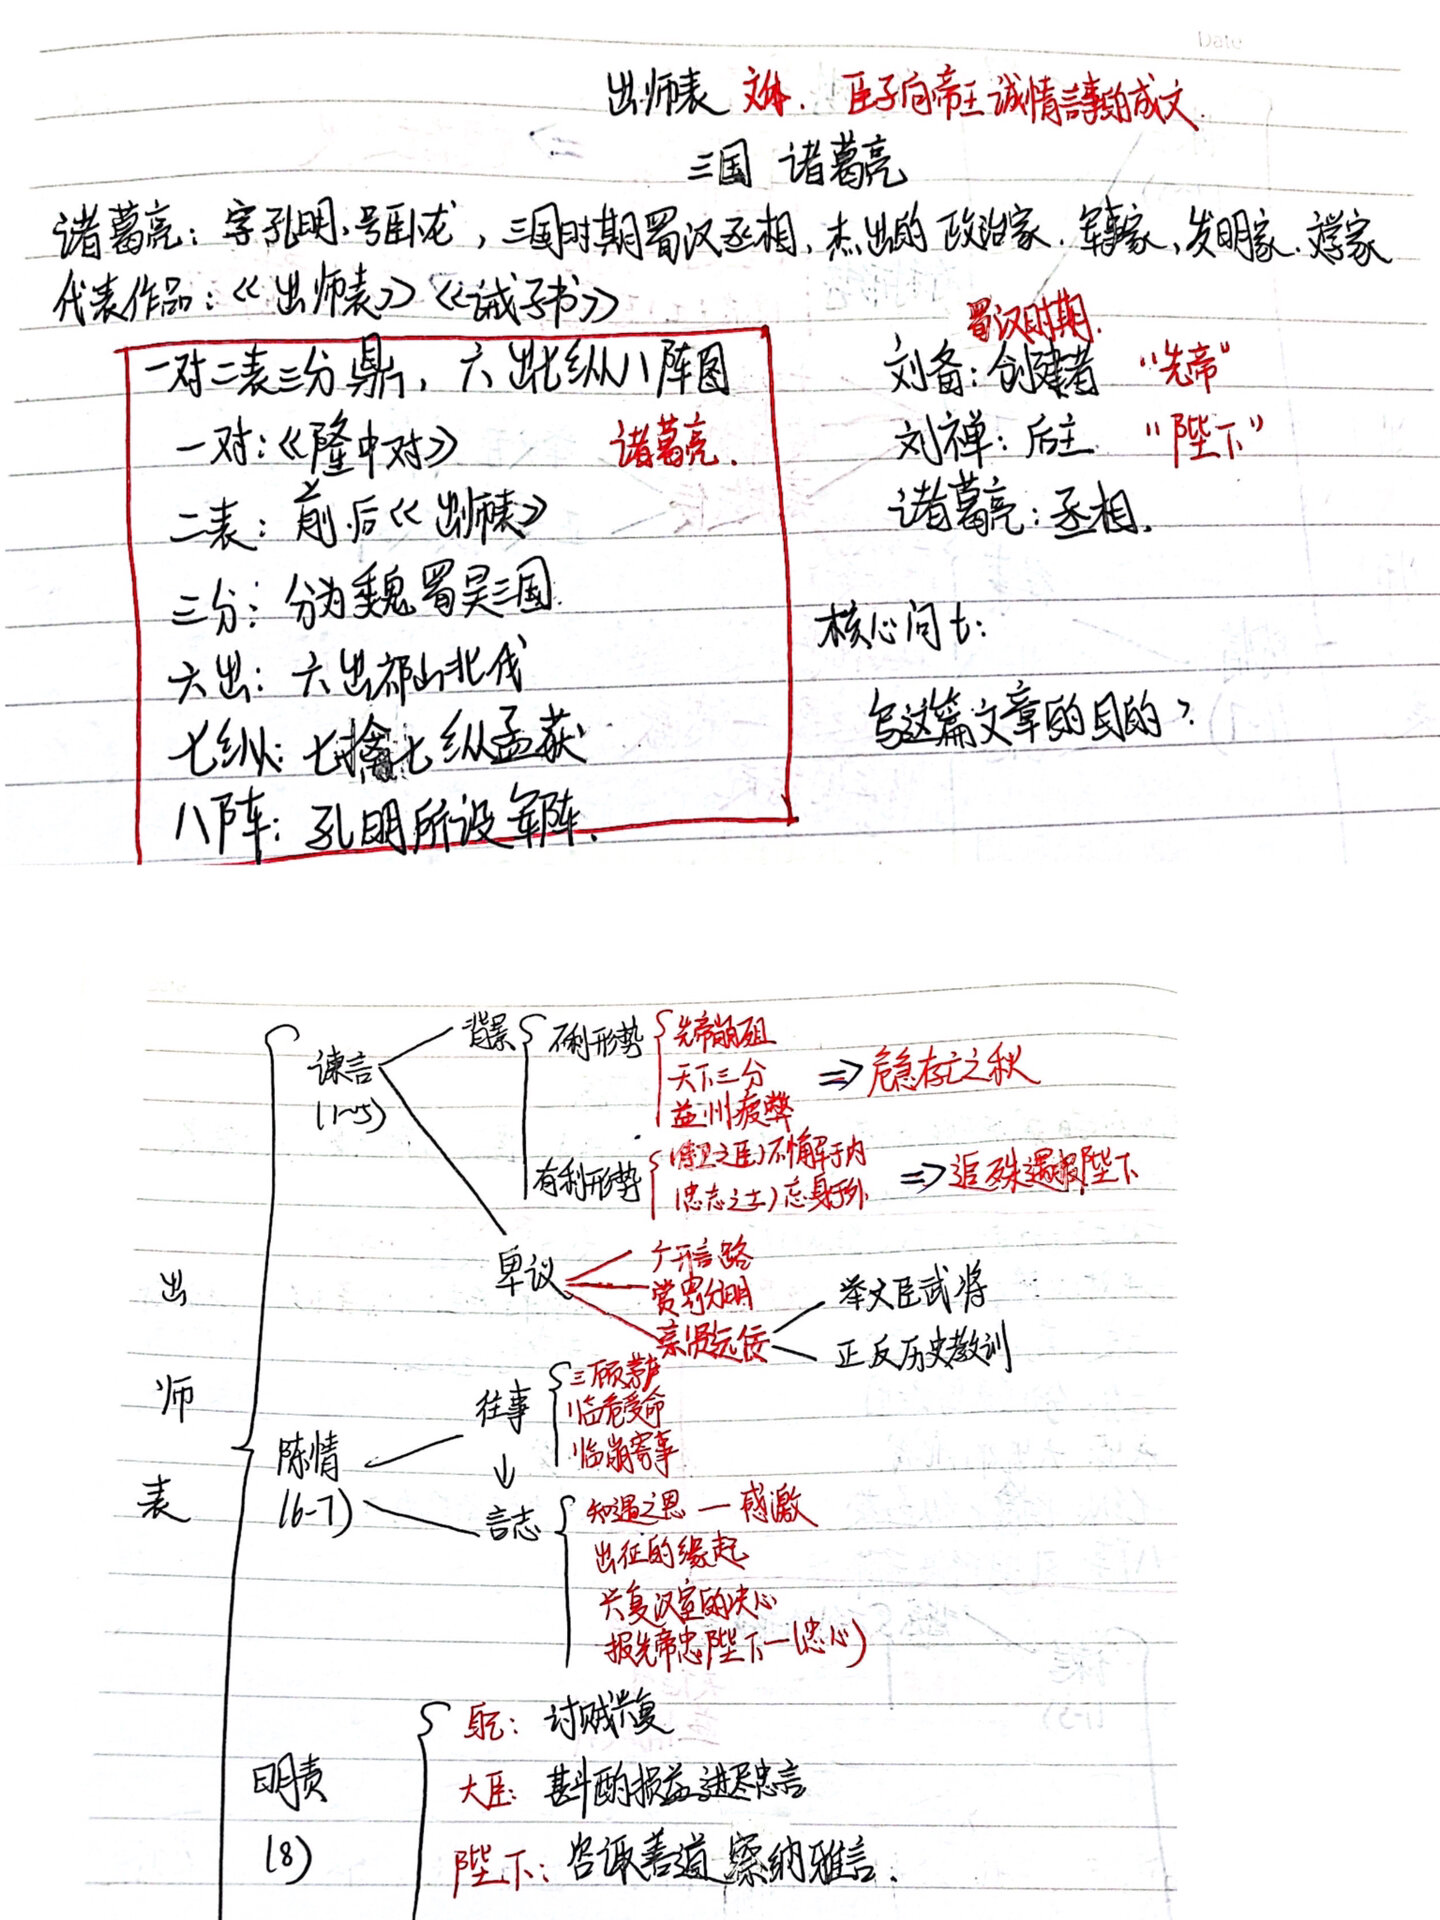 Date
出师表 文体. 臣子向帝王诚情言事的成文.
三国 诸葛亮
诸葛亮：字孔明、号卧龙，三国时期蜀汉丞相，杰出的政治家、军事家、发明家、文学家
代表作品：《出师表》《诫子书》
一对二表三分鼎，六出七纵八阵图
一对：《隆中对》 诸葛亮.
二表：前、后《出师表》
三分：分为魏蜀吴三国.
六出：六出祁山北伐
七纵：七擒七纵孟获
八阵：孔明所设军阵.
蜀汉时期.
刘备：创建者 “先帝”
刘禅：后主 “陛下”
诸葛亮：丞相.
核心问七：
写这篇文章的目的？
出师表
谏言
(1~5)
背景
不利形势
先帝崩殂
天下三分
益州疲弊
=> 危急存亡之秋
有利形势
(侍卫之臣)不懈于内
(忠志之士)忘身于外
=> 追殊遇报陛下
建议
广开言路
赏罚分明
亲贤远佞
举文臣武将
正反历史教训
陈情
(6-7)
往事
三顾茅庐
临危受命
临崩寄事
↓
言志
知遇之恩 — 感激
出征的缘起
兴复汉室的决心
报先帝忠陛下—(忠心)
明责
(8)
自己：讨贼兴复
大臣：斟酌损益进尽忠言
陛下：咨诹善道 察纳雅言.